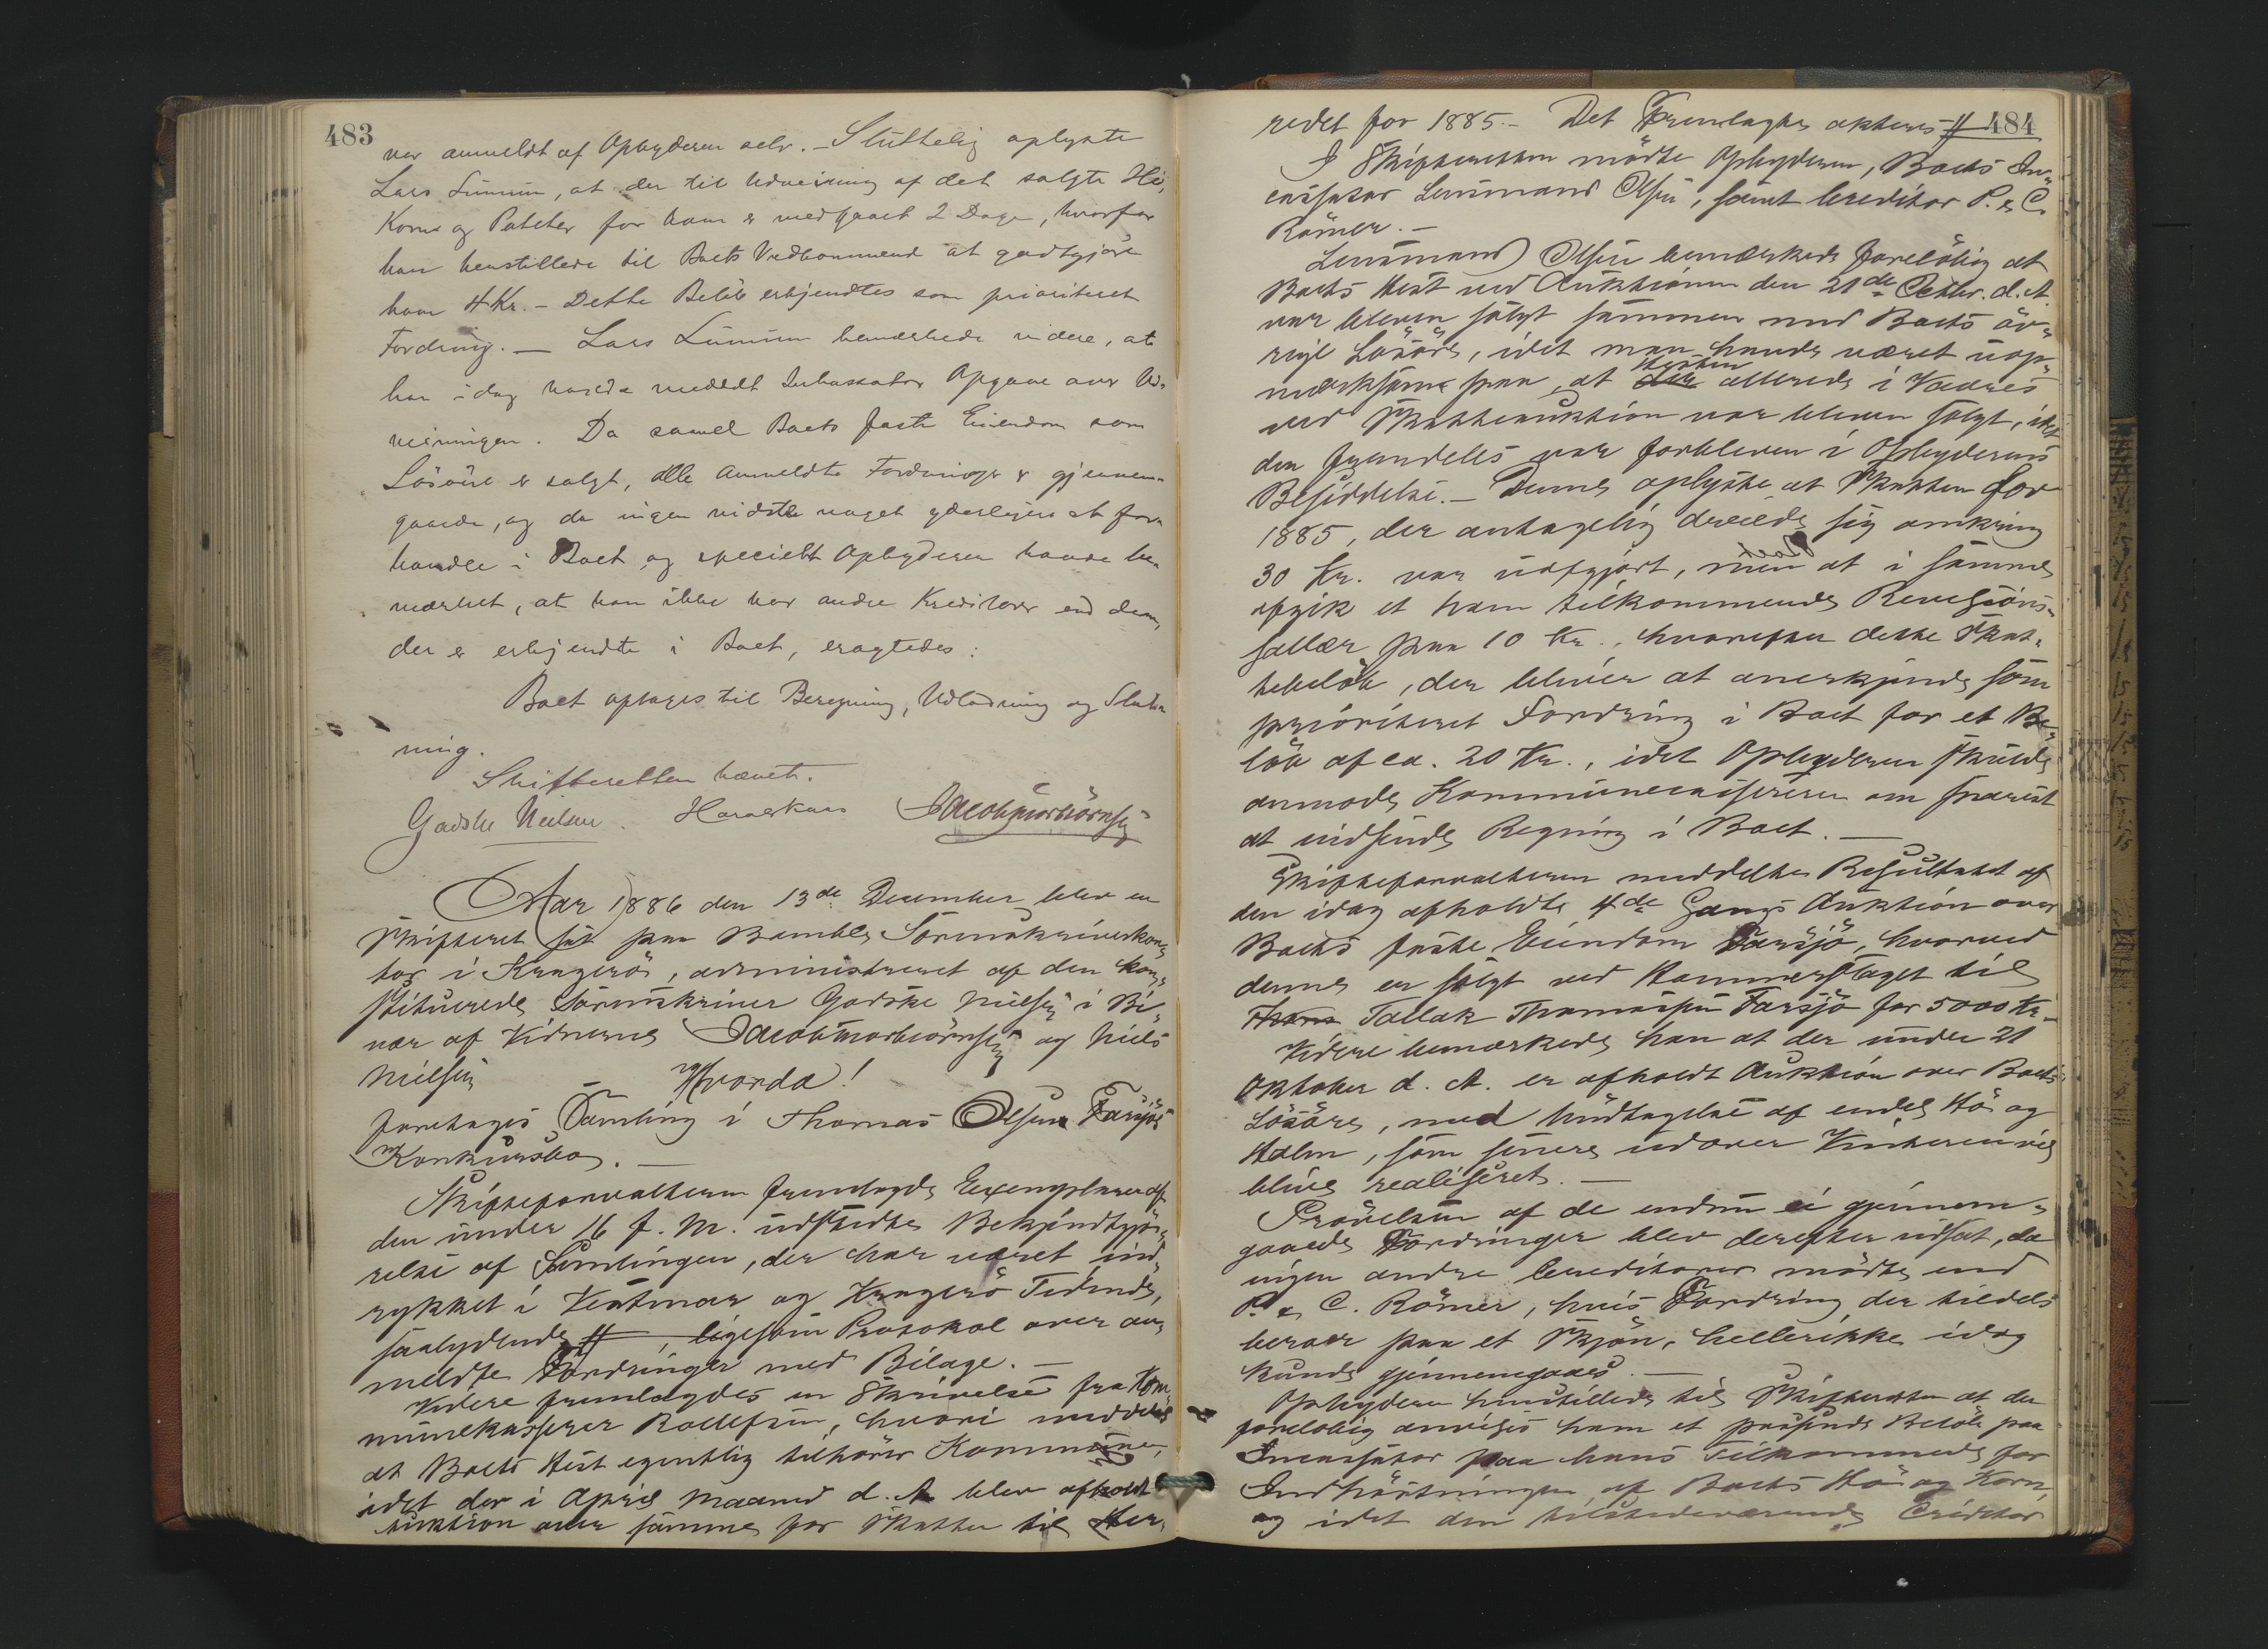 483
var anmeldt af Opbyderen selv. – Sluttelig oplyste
Lars Lunsum, at der til Udveining af det solgte Hö,
Korn og Poteter for ham er medgaaet 2 Dage, hvorfor
han henstillede til Boets Vedkommende at godtgjöre
ham 4 Kr. – Dette Belöb erkjendtes som prioriteret
Fordring. – Lars Lunsum bemærkede videre, at
han idag havde meddelt Inkassator Opgave over Ud-
veiningen. Da saavel Boets faste Eiendom som
Lösöre er solgt, alle anmeldte Fordringer er gjennem-
gaaede, og da ingen vidste noget yderligere at for-
handle i Boet, og specielt Opbyderen havde be-
mærket, at han ikke har andre Kreditorer end dem,
der er erkjendte i Boet, eragtedes:
Boet optages til Beregning, Udlodning og Slut-
ning.
Skifteretten hævet.
Godske Nielsen. Haraerkaas Jacob Thorbiörnsen
Aar 1886 den 13de December blev en
Skifteret sat paa Bamble Sorenskriverkon-
tor i Kragerö, administreret af den kon-
stituerede Sorenskriver Godske Nielsen i Bi-
vær af Vidnerne Jacob Thorbiörnsen og Niels
Nielsen
Hvorda!
foretoges Samling i Thomas Olsen Farsjös
Konkursbo. –
Skifteforvalteren fremlagde Exemplarer af
den under 16 f. M. udstedte Bekjendtgjö-
relse af Samlingen, der har været ind-
rykket i Vestmar og Kragerö Tidende,
saalydende #, ligesom Protokol over an-
meldte Fordringer med Bilage. –
Videre fremlagdes en Skrivelse fra Kom-
munekasserer Rollefsen, hvori meddeles
at Boets Hest egentlig tilhörer Kommunen,
idet der i April Maaned d. A. blev afholdt
Auktion over samme for Skatter til Her-
484
redet for 1885. – Det Fremlagte akteres #
I Skifteretten mödte Opbyderen, Boets In-
cassator Lensmand Olsen, samt Creditor P. & C.
Römer. –
Lensmand Olsen bemærkede foreløbig at
Boets Hest ved Auktionen den 21de Octbr. d. A.
var bleven solgt sammen med Boets öv-
rige Lösöre, idet man havde været uop-
mærksom paa, at Hesten allerede i Vaares
ved Skatteauktion var bleven solgt, idet
den fremdeles var forbleven i Opbyderens
Besiddelse. – Denne oplyste at Skatten for
1885, der antagelig dreiede sig omkring
30 Kr. var uopgjort, men at i samme
afgik et ham tilkommende Revisions-
sallær paa 10 Kr., hvorefter dette Skat-
tebelöb, der bliver at anerkjende som
prioriteret Fordring i Boet for et Be-
löb af ca. 20 Kr., idet Opbyderen skulde
anmode Kommunecassereren om snarest
at indsende Regning i Boet. –
Skifteforvalteren meddelte Resultatet af
den idag afholdte 4de Gangs Auktion over
Boets faste Eiendom Farsjö, hvorved
denne er solgt ved Hammerslaget til
Tallak Thomassen Farsjö for 5000 Kr. –
Videre bemærkede han at der under 21
Oktober d. A. er afholdt Auktion over Boets
Lösöre, med Undtagelse af endel Hö og
Halm, som senere udover Vinteren vil
blive realiseret. –
Prövelsen af de endnu ei gjennem-
gaaede Fordringer blev derefter udsat, da
ingen andre Creditorer mödte end
P. & C. Römer, hvis Fordring der tildels
beroer paa et Skjön, heller ikke idag
kunde gjennemgaaes. –
Opbyderen henstillede til Skifteretten at der
foreløbig anvises ham et passende Belöb paa
Incassator paa hans Tilkommende for
Indhöstningen af Boets Hö og Korn,
og idet den tilstedeværende Creditor